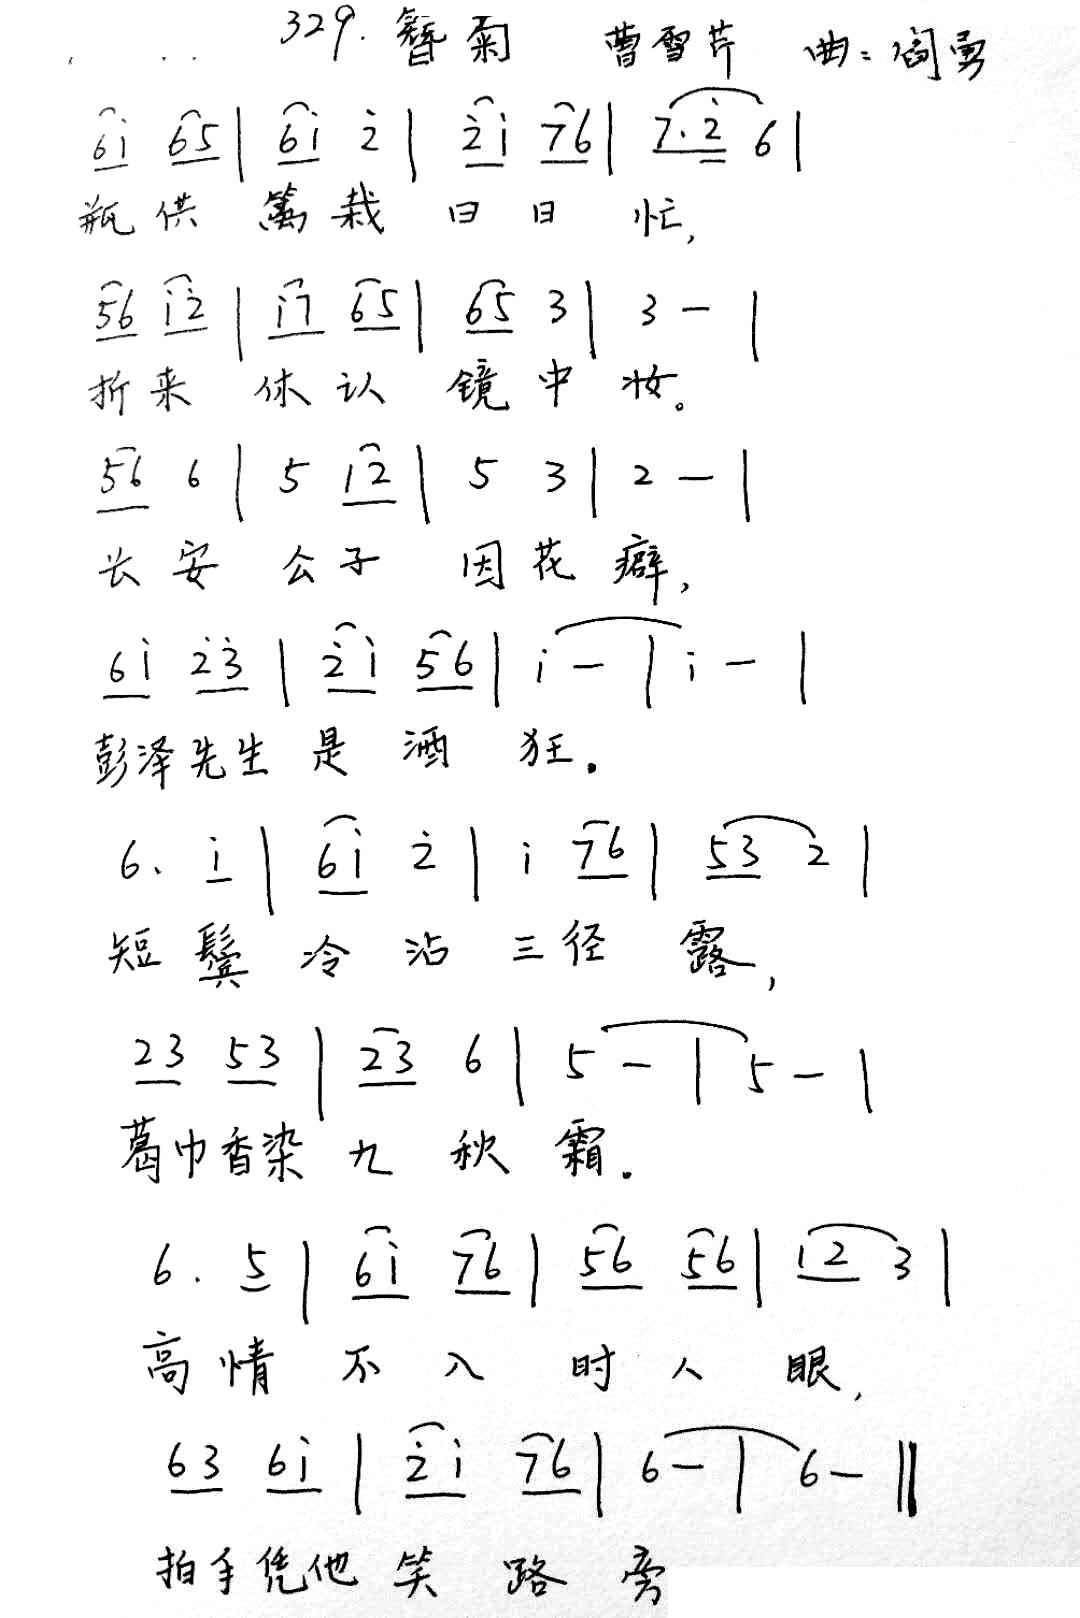 329. 簪菊 曹雪芹 曲:阎勇
6i 65 | 6i 2̇ | 2̇i 76 | 7.2̇ 6 |
瓶供 篱栽 日日 忙,
56 i2̇ | i7 65 | 65 3 | 3 — |
折来 休认 镜中 妆。
56 6 | 5 12 | 5 3 | 2 — |
长安 公子 因花癖,
6i 2̇3̇ | 2̇i 56 | i — | i — |
彭泽先生 是 酒 狂.
6. i | 6i 2̇ | i 76 | 53 2 |
短鬓 冷 沾 三径 露,
23 53 | 23 6 | 5 — | 5 — |
葛巾香染 九 秋 霜.
6. 5 | 6i 76 | 56 56 | 12 3 |
高情 不 入 时 人 眼,
63 6i | 2̇i 76 | 6 — | 6 — ||
拍手凭他 笑 路 旁